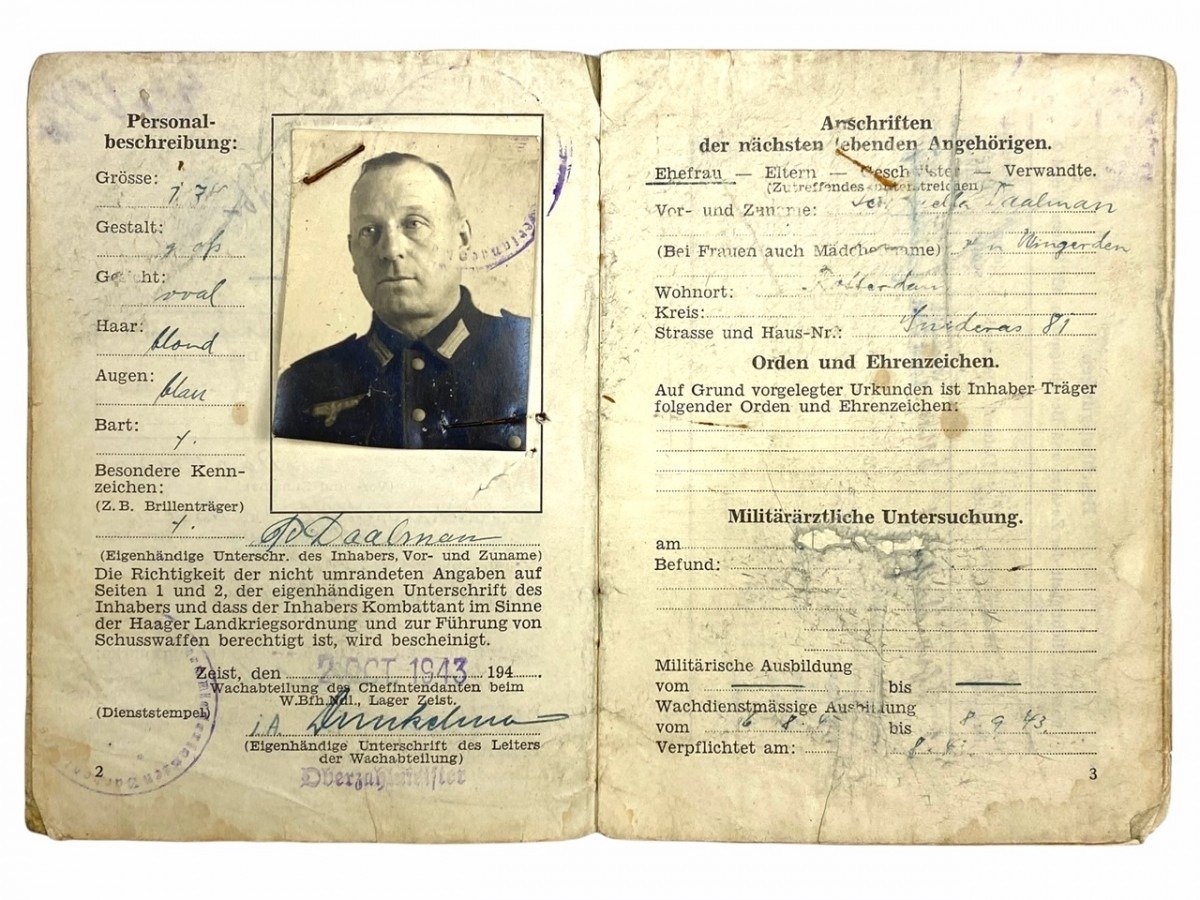 Personal-
beschreibung:
Grösse: 1.74
Gestalt:
Gesicht: oval
Haar: blond
Augen: blau
Bart: /.
Besondere Kenn-
zeichen:
(Z. B. Brillenträger)
/.
Daalman
(Eigenhändige Unterschr. des Inhabers, Vor- und Zuname)
Die Richtigkeit der nicht umrandeten Angaben auf
Seiten 1 und 2, der eigenhändigen Unterschrift des
Inhabers und dass der Inhabers Kombattant im Sinne
der Haager Landkriegsordnung und zur Führung von
Schusswaffen berechtigt ist, wird bescheinigt.
Zeist, den 2 OCT. 1943 194
Wachabteilung des Chefintendanten beim
W.Bfh.Ndl., Lager Zeist.
(Dienststempel)
i.A.
(Eigenhändige Unterschrift des Leiters
der Wachabteilung)
Oberzahlmeister
2
Anschriften
der nächsten lebenden Angehörigen.
Ehefrau — Eltern — Geschwister — Verwandte.
(Zutreffendes unterstreichen)
Vor- und Zuname: Daalman
(Bei Frauen auch Mädchenname) Wingerden
Wohnort: Rotterdam
Kreis:
Strasse und Haus-Nr.: 81
Orden und Ehrenzeichen.
Auf Grund vorgelegter Urkunden ist Inhaber Träger
folgender Orden und Ehrenzeichen:
Militärärztliche Untersuchung.
am
Befund:
Militärische Ausbildung
vom — bis —
Wachdienstmässige Ausbildung
vom bis 8.9.43.
Verpflichtet am:
3